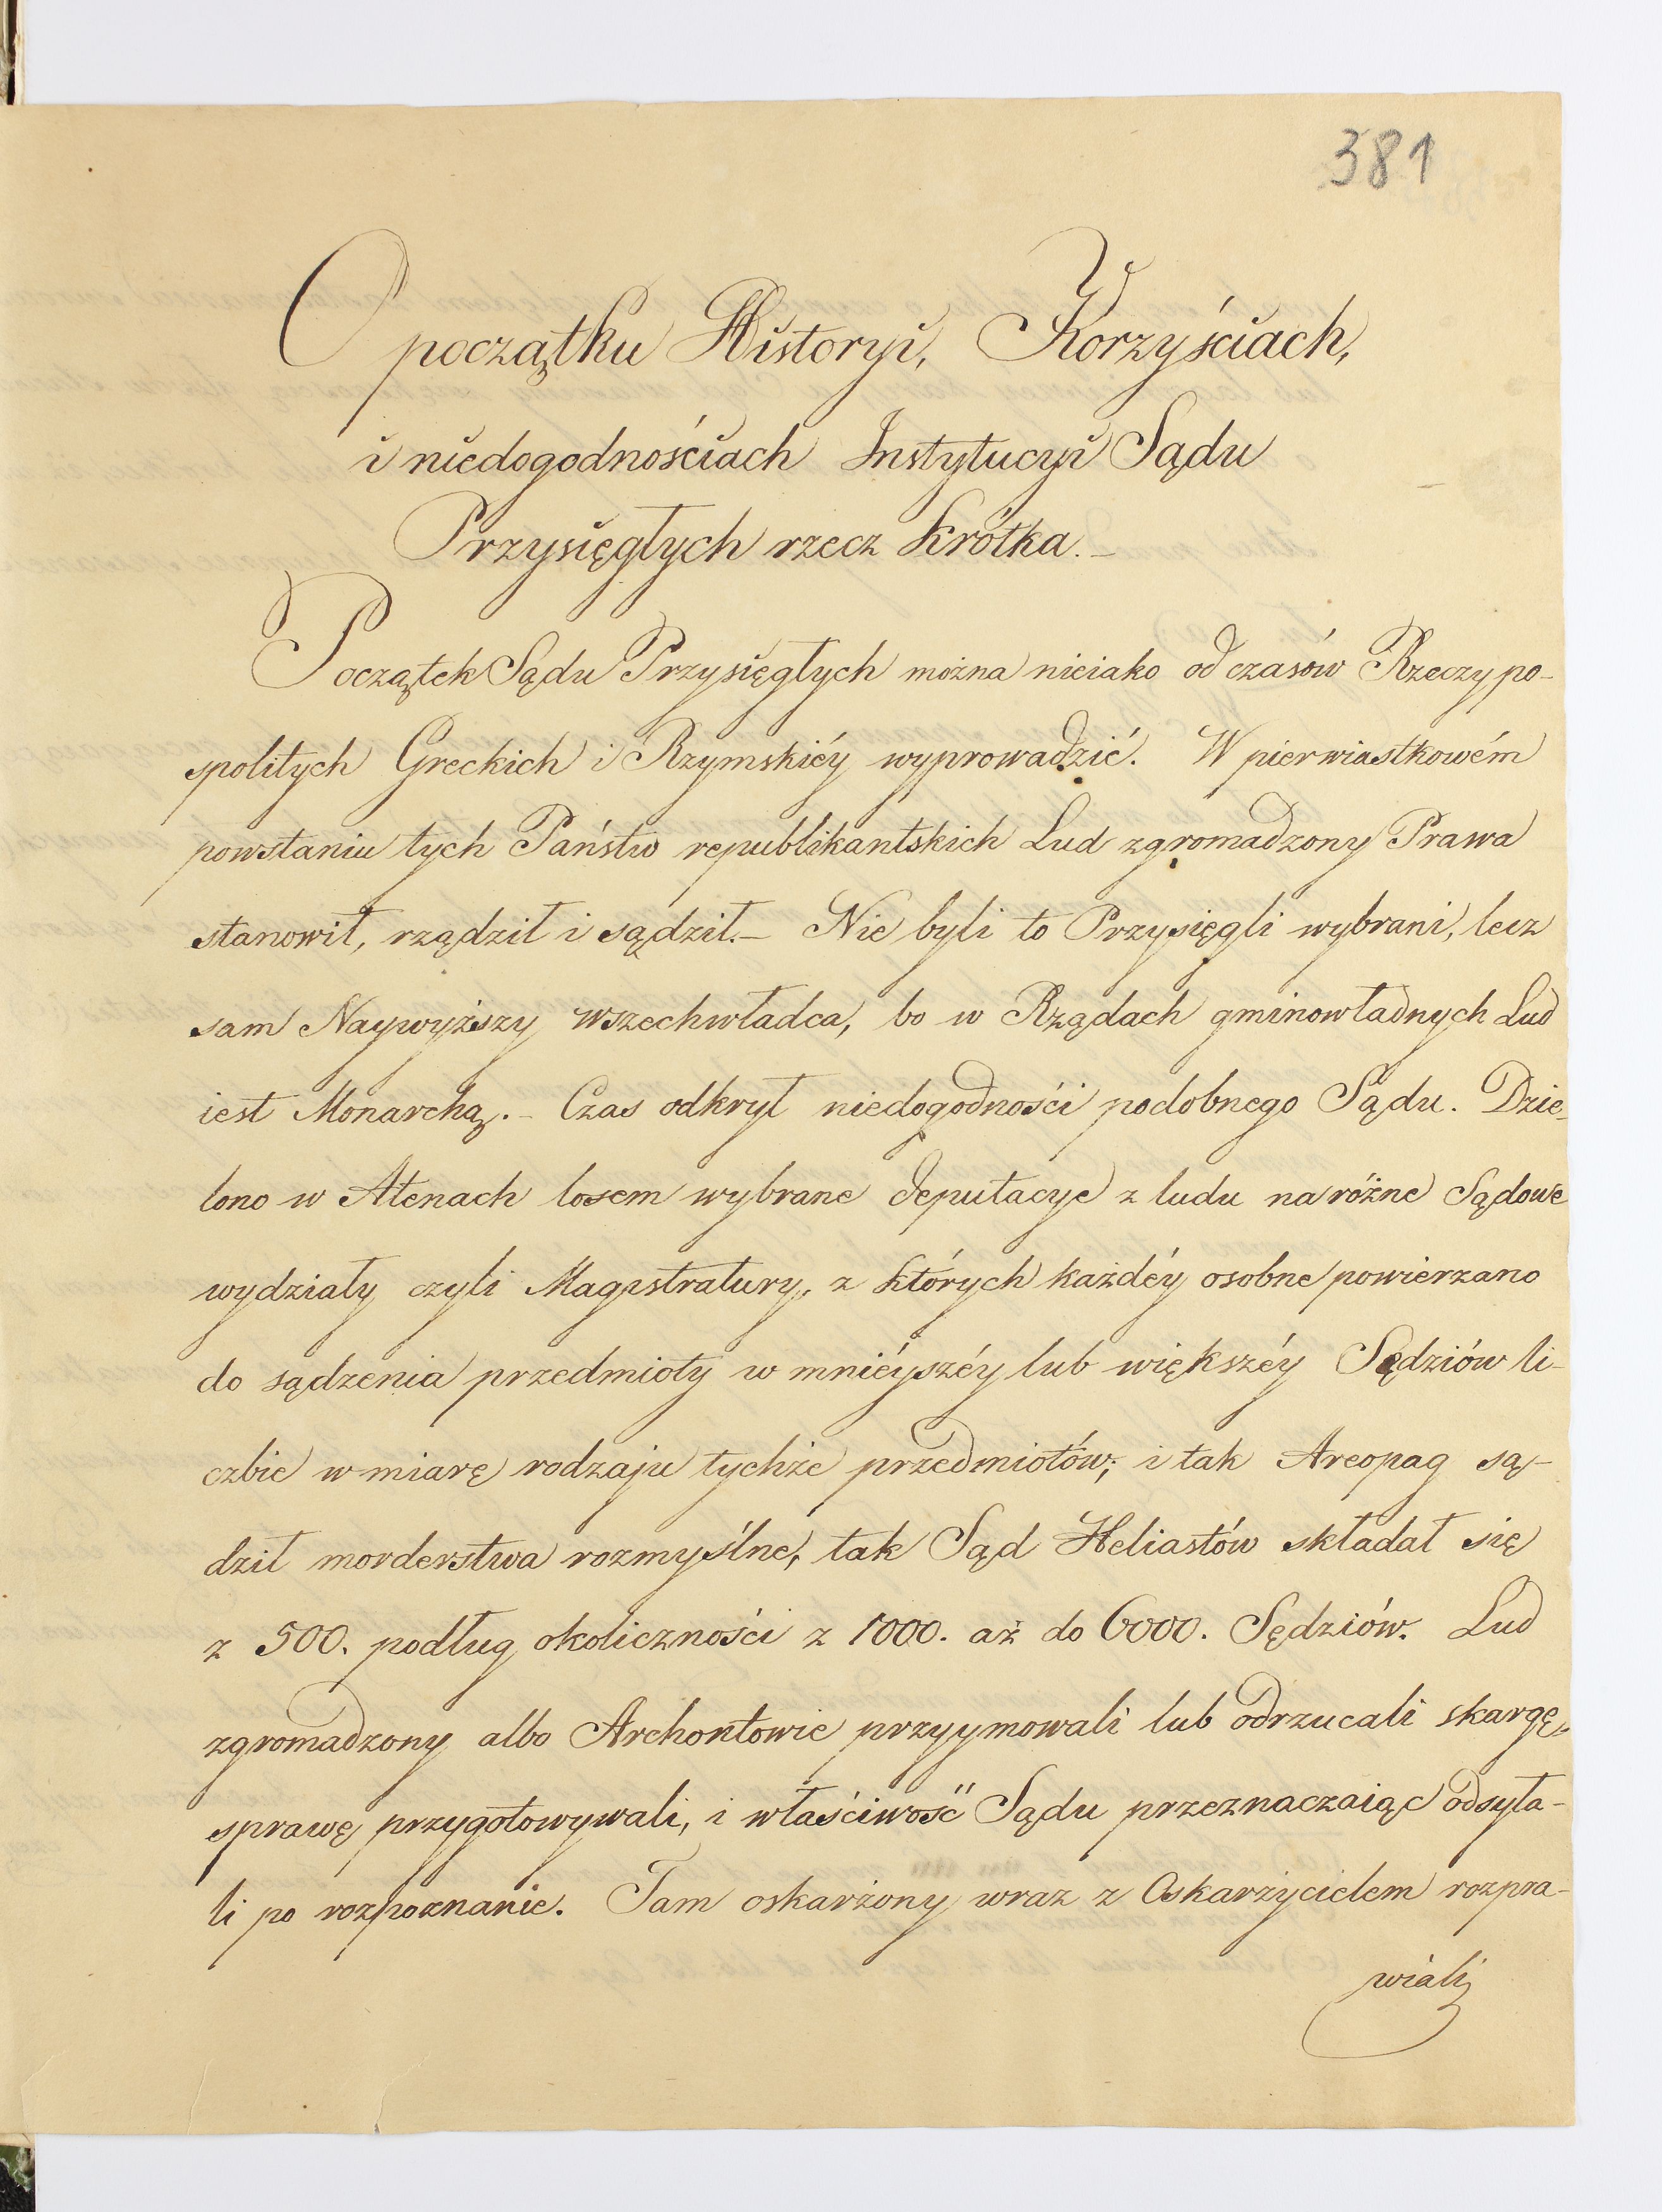 381
O początku Historyi, Korzyściach,
i niedogodnościach Instytucyi Sądu
Przysięgłych rzecz krótka.-
Początek Sądu Przysięgłych można nieiako od czasów Rzeczypo-
spolitych Greckich i Rzymskiéy wyprowadzić. W pierwiastkowém
powstaniu tych Państw republikantskich Lud zgromadzony Prawa
stanowił, rządził i sądził.- Nie byli to Przysięgli wybrani, lecz
sam Naywyższy wszechwładca, bo w Rządach gminowładnych Lud
iest Monarchą.- Czas odkrył niedogodności podobnego Sądu. Dzie-
lono w Atenach losem wybrane deputacye z ludu na różne Sądowe
wydziały czyli Magistratury, z których każdéy osobne powierzano
do sądzenia przedmioty w mniéyszéy lub większéy Sędziów li-
czbie w miarę rodzaju tychże przedmiotów; i tak Areopag są-
dził morderstwa rozmyślne, tak Sąd Heliastów składał się
z 500. podług okoliczności z 1000. aż do 6000. Sędziów. Lud
zgromadzony albo Archontowie przyymowali lub odrzucali skargę,
sprawę przygotowywali, i właściwość Sądu przeznaczaiąc odsyła-
li po rozpoznanie. Tam oskarżony wraz z Oskarżycielem rozpra-
wiali